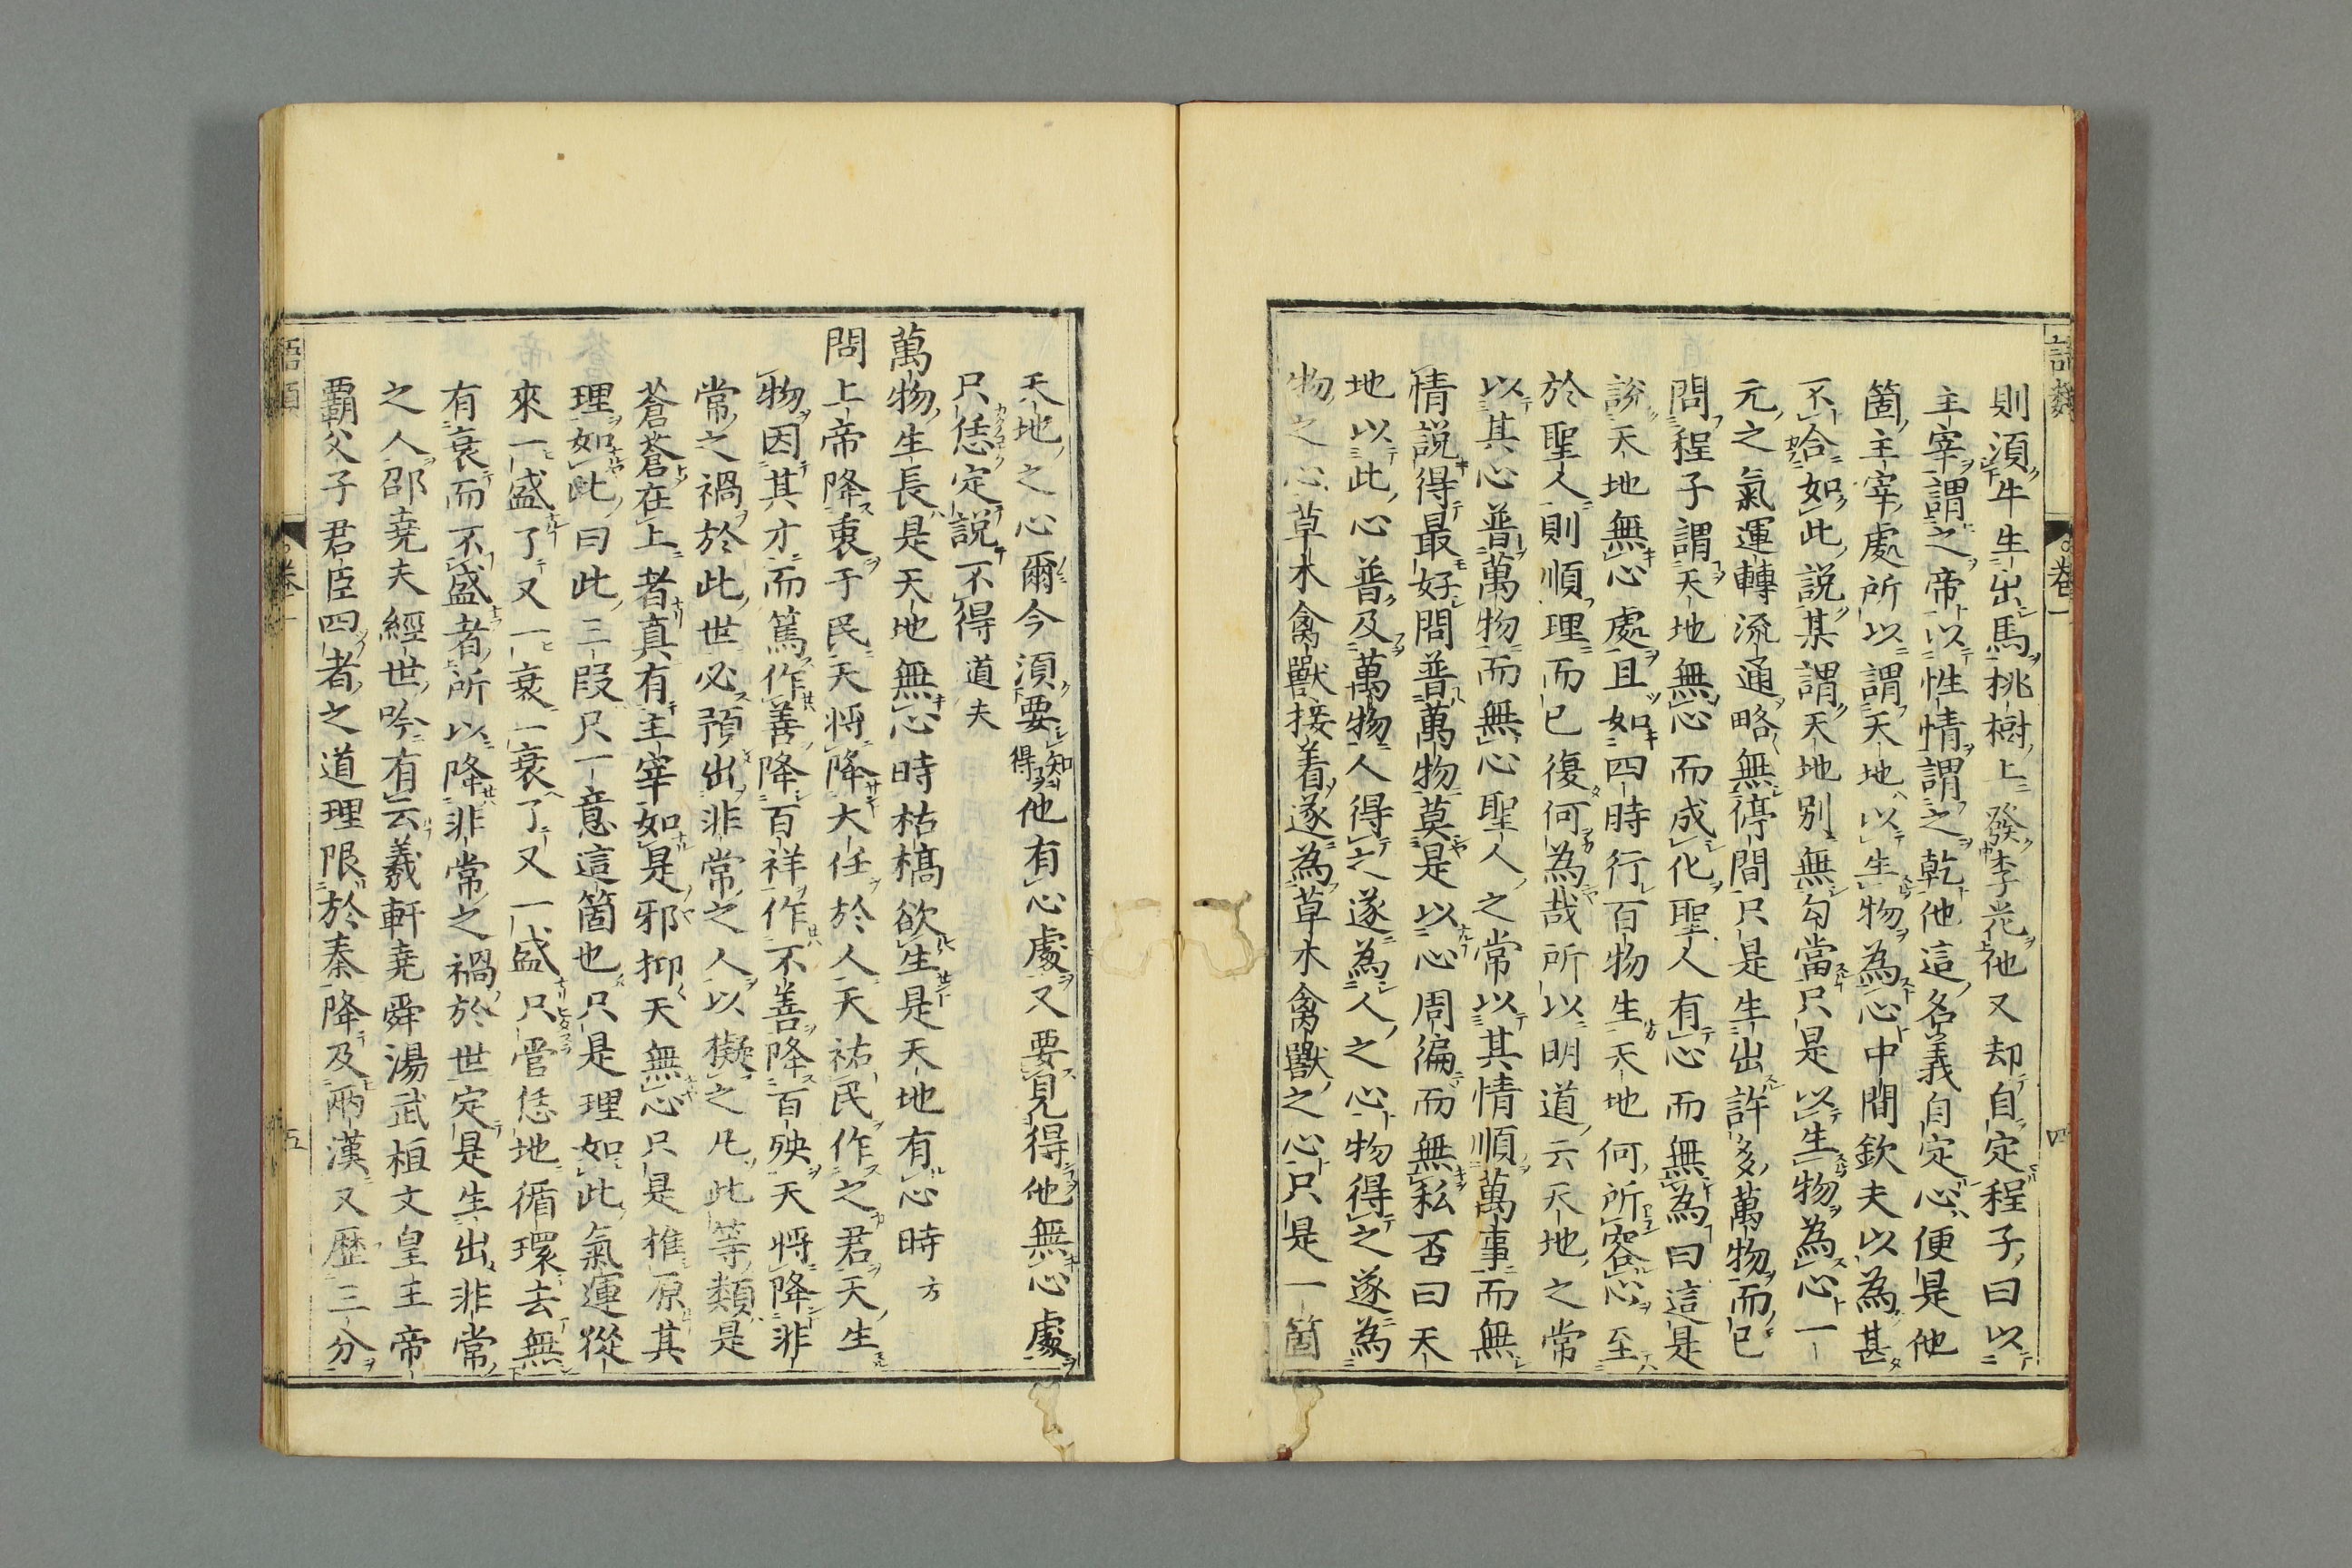 語類 卷一 四
則須牛生出馬桃樹上發李花他又却自定程子曰以
主宰謂之帝以性情謂之乾他這名義自定心便是他
箇主宰處所以謂天地以生物為心中間欽夫以為甚
不合如此説某謂天地别無勾當只是以生物為心一
元之氣運轉流通略無停間只是生出許多萬物而已
問程子謂天地無心而成化聖人有心而無為曰這是
說天地無心處且如四時行百物生天地何所容心至
於聖人則順理而已復何為哉所以明道云天地之常
以其心普萬物而無心聖人之常以其情順萬事而無
情説得最好問普萬物莫是以心周徧而無私否曰天
地以此心普及萬物人得之遂為人之心物得之遂為
物之心草木禽獸接着遂為草木禽獸之心只是一箇
天地之心爾今須要知得他有心處又要見得他無心處
只恁定説不得 道夫
萬物生長是天地無心時枯槁欲生是天地有心時 方
問上帝降衷于民天将降大任於人天祐民作之君天生
物因其才而篤作善降百祥作不善降百殃天将降非
常之禍於此世必預出非常之人以擬之凡此等類是
蒼蒼在上者真有主宰如是邪抑天無心只是推原其
理如此曰此三段只一意這箇也只是理如此氣運從
來一盛了又一衰一衰了又一盛只管恁地循環去無
有衰而不盛者所以降非常之禍於世定是生出非常
之人邵堯夫經世吟有云羲軒堯舜湯武桓文皇王帝
覇父子君臣四者之道理限於秦降及兩漢又歴三分
語類 卷一 五